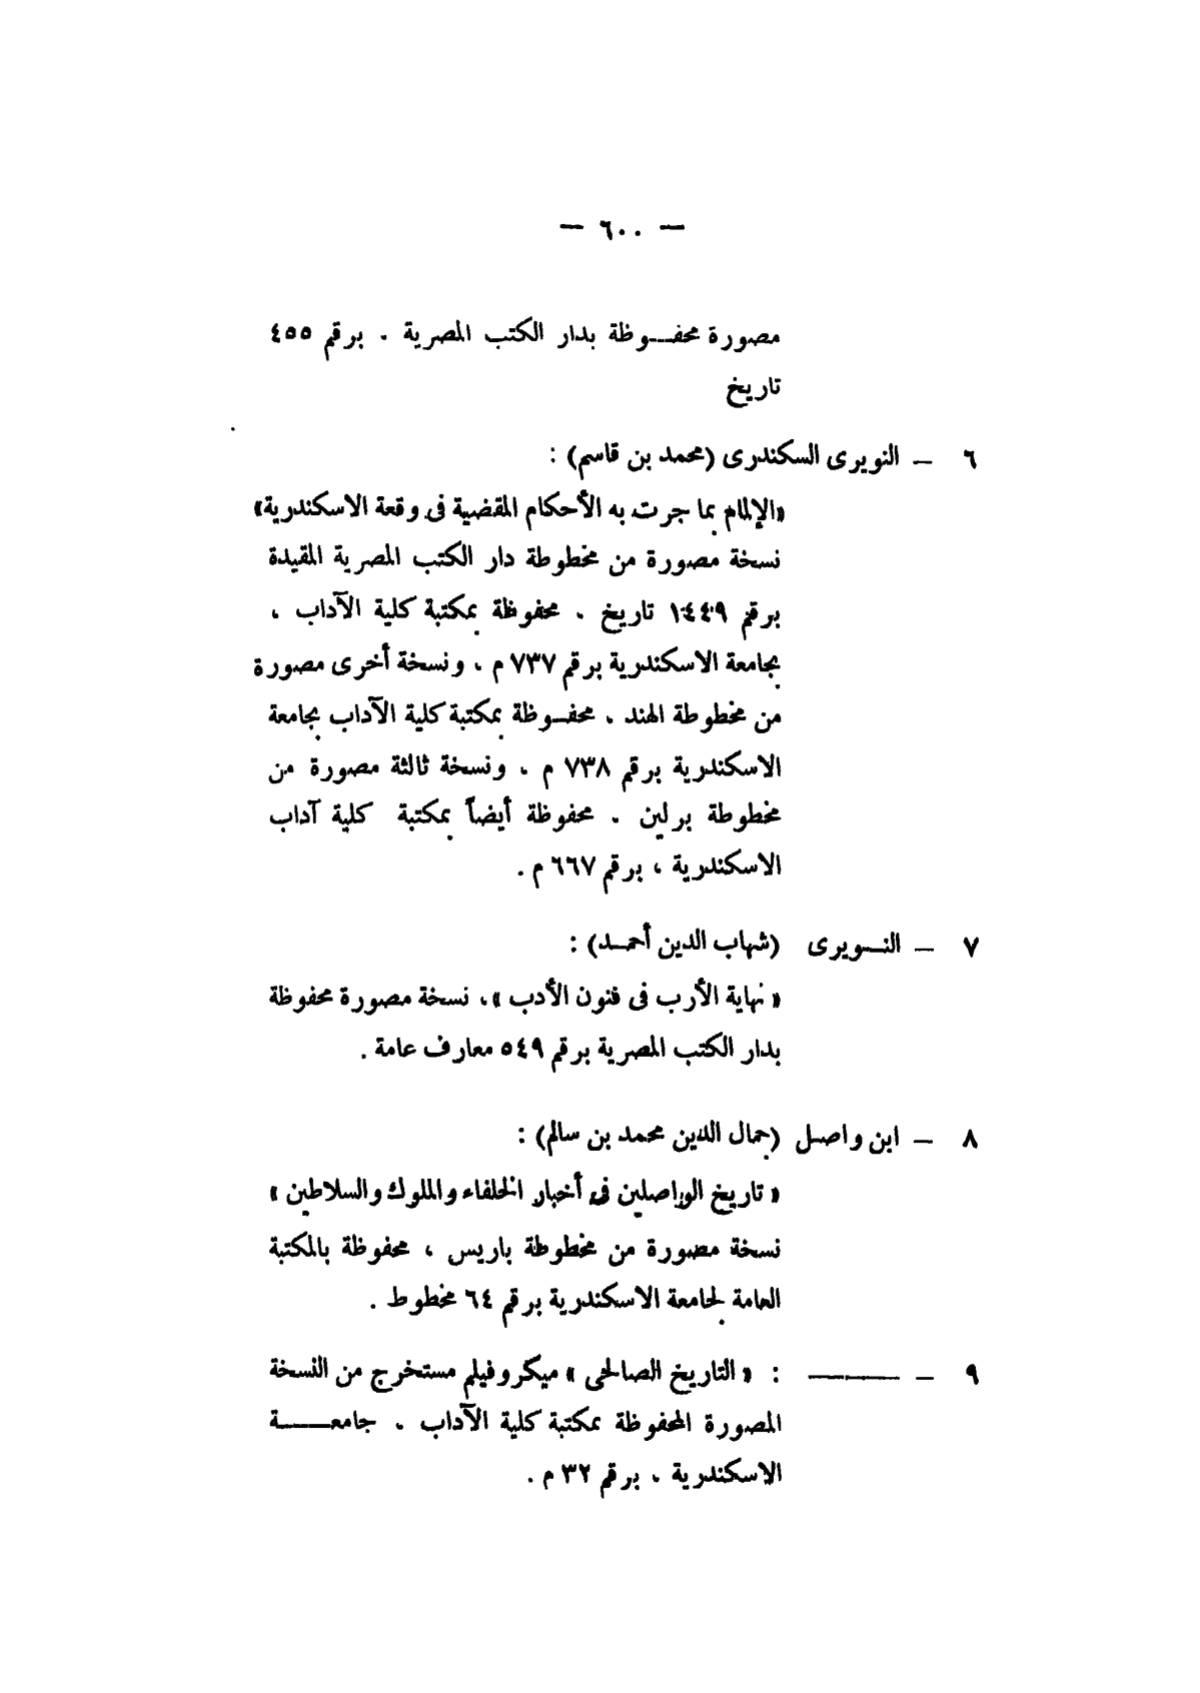 — ٦٠٠ —
مصورة محفــوظة بدار الكتب المصرية ، برقم ٤٥٥
تاريخ
٦ — النويرى السكندرى (محمد بن قاسم) :
«الإلمام بما جرت به الأحكام المقضية فى وقعة الاسكندرية»
نسخة مصورة من مخطوطة دار الكتب المصرية المقيدة
برقم ١٤٤٩ تاريخ ، محفوظة بمكتبة كلية الآداب ،
بجامعة الاسكندرية برقم ٧٣٧ م ، ونسخة أخرى مصورة
من مخطوطة الهند ، محفــوظة بمكتبة كلية الآداب بجامعة
الاسكندرية برقم ٧٣٨ م ، ونسخة ثالثة مصورة من
مخطوطة برلين ، محفوظة أيضاً بمكتبة كلية آداب
الاسكندرية ، برقم ٦٦٧ م .
٧ — النــويرى (شهاب الدين أحمــد) :
« نهاية الأرب فى فنون الأدب » ، نسخة مصورة محفوظة
بدار الكتب المصرية برقم ٥٤٩ معارف عامة .
٨ — ابن واصل (جمال الدين محمد بن سالم) :
« تاريخ الواصلين فى أخبار الخلفاء والملوك والسلاطين »
نسخة مصورة من مخطوطة باريس ، محفوظة بالمكتبة
العامة لجامعة الاسكندرية برقم ٦٤ مخطوط .
٩ — ——— : « التاريخ الصالحى » ميكروفيلم مستخرج من النسخة
المصورة المحفوظة بمكتبة كلية الآداب ، جامعــــة
الاسكندرية ، برقم ٣٢ م .